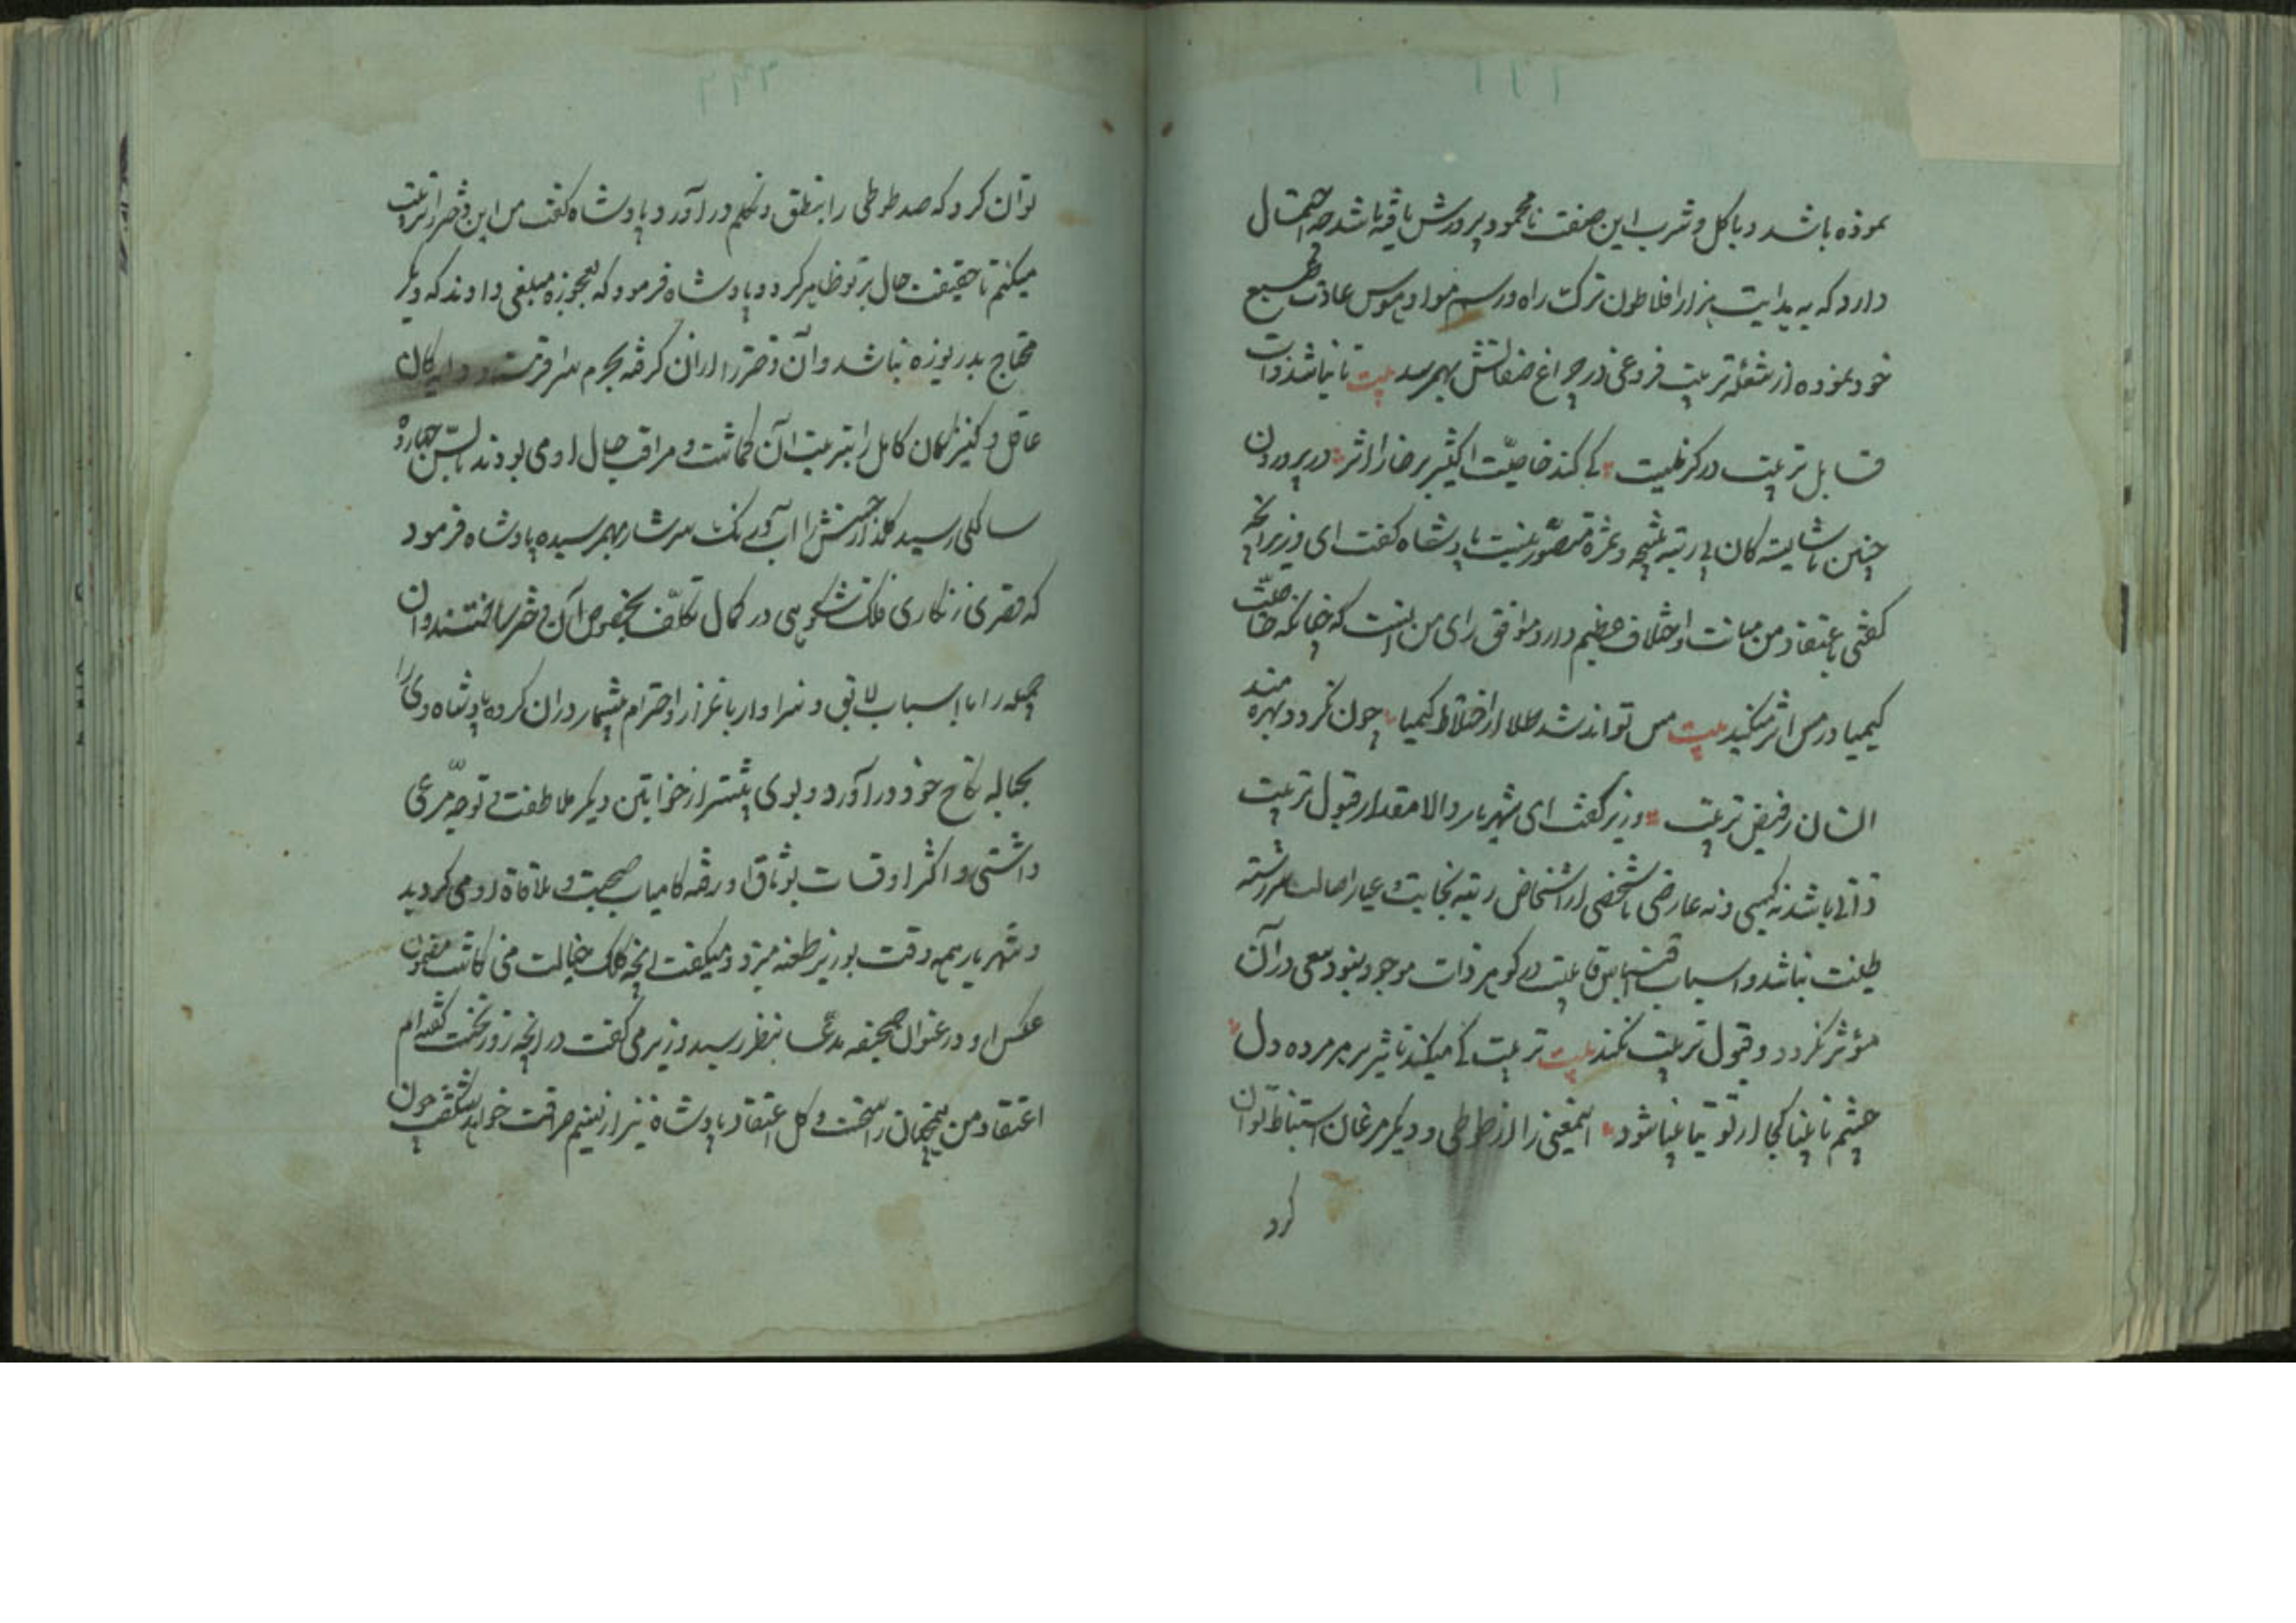 نموده باشد و باکل و شرب این صفت نامحمود پرورش یافته باشد چه احتمال
دارد که به هدایت هزار افلاطون ترک راه و رسم هوا و هوس عادت طبع
خود نموده از شعله تربیت فروغی در چراغ صفاتش بهمرسد بیت تا نباشد ذات
قابل تربیت در کار نیست کی کند خاصیت اکثیر بر خارا اثر در پروردن
چنین ناشایسته کان بی رتبه نتیجه و ثمره متصور نیست پادشاه کفت ای وزیر آنچه
کفتی باعتقاد من مباینت و اختلاف عظیم دارد موافق رای من اینست که چنانکه خاصیت
کیمیا در مس اثر میکند بیت مس تواند شد طلا از اختلاط کیمیا چون نکردد بهره مند
انسان ز فیض تربیت وزیر کفت ای شهریار والا مقدار قبول تربیت
ذاتی باشد نه کسبی و نه عارضی تا شخصی از اشخاص رتبه نجابت و عیار اصالت سررشته
طینت نباشد و اسباب اقتباس قابلیت در کوهر ذات موجود نبود سعی در آن
مؤثر نکردد و قبول تربیت نکند بیت تربیت کی میکند تاثیر بر هر مرده دل
چشم نابینا کجا از توتیا بینا شود اینمعنی را از طوطی و دیکر مرغان استنباط توان
کرد
توان کرد که صد طوطی را بنطق و تکلم در آورد پادشاه کفت من این دختر را تربیت
میکنم تا حقیقت حال بر تو ظاهر کردد پادشاه فرمود که بعجوزه مبلغی دادند که دیکر
محتاج بدریوزه نباشد و آن دختر را از آن کرفته بحرم سرا فرستاد و دایکان
عاقل و کنیزکان کامل را بتربیت آن کماشت و مراقب حال او می بودند تا بسن چهارده
سالکی رسید کلذار حسنش را آب و رنک سرشار بهمرسیده پادشاه فرمود
که قصری زنکاری فلک شکوهی در کمال تکلف بخصوص آن دختر ساختند و آن
جمیله را با اسباب لایق و سزاوار باعزاز و احترام بیشمار در آن کرده پادشاه وی را
بحباله نکاح خود در آورد و بوی بیشتر از خواتین دیکر ملاطفت و توجه مرعی
داشتی و اکثر اوقات بوثاق او رفته کامیاب صحبت و ملاقاة او می کردید
و شهریار همه وقت بوزیر طعنه میزد و میکفت آنچه کلک خیالت می کاشت مضمون
عکس او در عنوان صحیفه مدعا بنظر رسید وزیر می کفت در آنچه روز نخست کفته ام
اعتقاد من همچنان راسخست و کل اعتقاد پادشاه نیز از نسیم صرافت خواهد شکفت چون